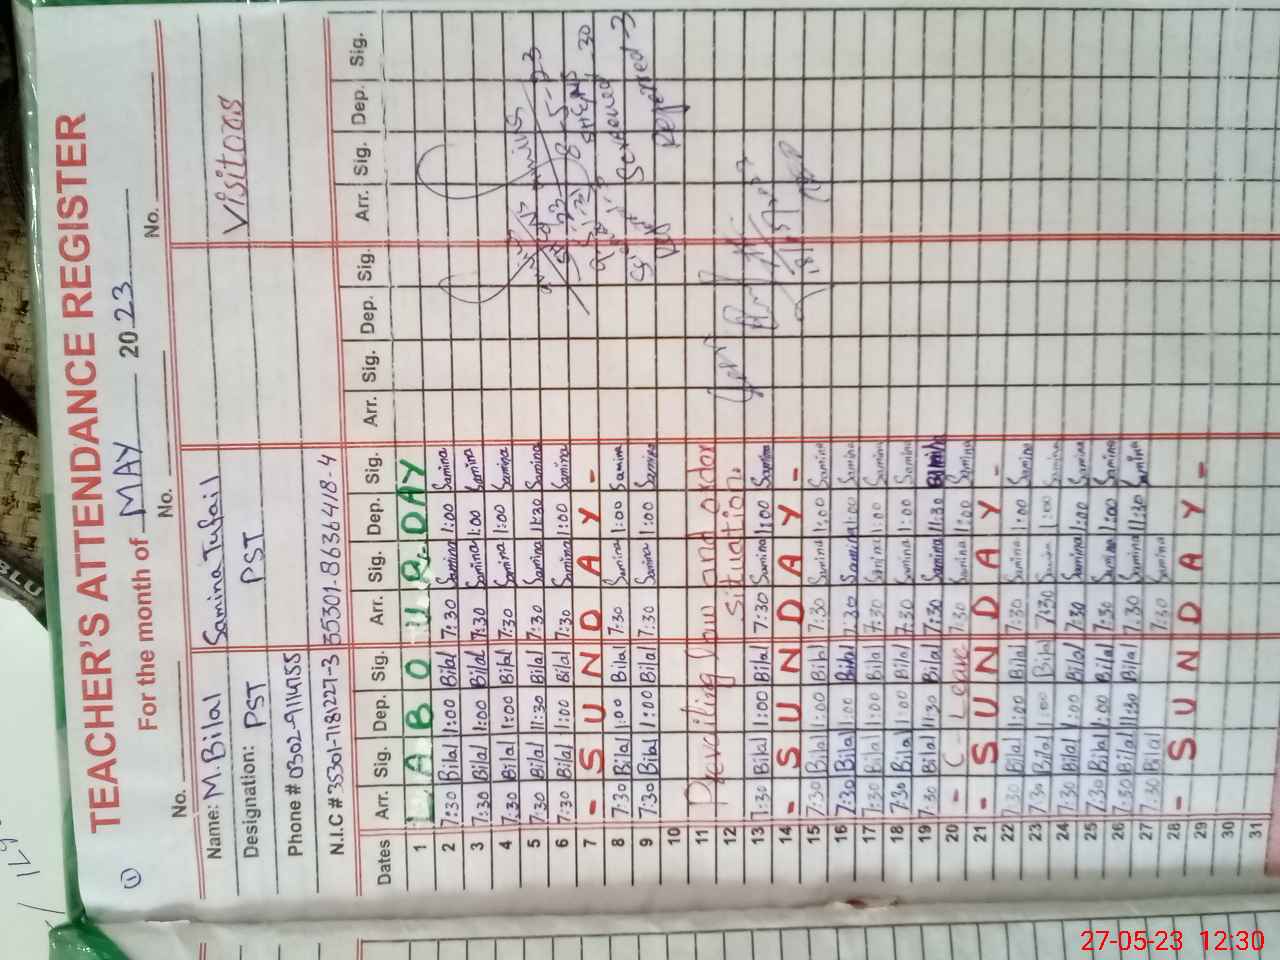 TEACHER'S ATTENDANCE REGISTER
① For the month of MAY 2023
No. No. No.
Name: M.Bilal Samina Tufail Visitors
Designation: PST PST
Phone # 0302-9114155
N.I.C # 35301-7181227-3 35301-8636418-4
Dates Arr. Sig. Dep. Sig. Arr. Sig. Dep. Sig. Arr. Sig. Dep. Sig. Arr. Sig. Dep. Sig.
1 LABOUR DAY
2 7:30 Bilal 1:00 Bilal 7:30 Samina 1:00 Samina
3 7:30 Bilal 1:00 Bilal 7:30 Samina 1:00 Samina
4 7:30 Bilal 1:00 Bilal 7:30 Samina 1:00 Samina
5 7:30 Bilal 11:30 Bilal 7:30 Samina 11:30 Samina
6 7:30 Bilal 1:00 Bilal 7:30 Samina 1:00 Samina
7 - SUNDAY -
8 7:30 Bilal 1:00 Bilal 7:30 Samina 1:00 Samina
9 7:30 Bilal 1:00 Bilal 7:30 Samina 1:00 Samina
10
11 Prevailing law and order
12 situation.
13 7:30 Bilal 1:00 Bilal 7:30 Samina 1:00 Samina
14 - SUNDAY -
15 7:30 Bilal 1:00 Bilal 7:30 Samina 1:00 Samina
16 7:30 Bilal 1:00 Bilal 7:30 Samina 1:00 Samina
17 7:30 Bilal 1:00 Bilal 7:30 Samina 1:00 Samina
18 7:30 Bilal 1:00 Bilal 7:30 Samina 1:00 Samina
19 7:30 Bilal 11:30 Bilal 7:30 Samina 11:30
20 - C-Leave 7:30 Samina 1:00 Samina
21 - SUNDAY -
22 7:30 Bilal 1:00 Bilal 7:30 Samina 1:00 Samina
23 7:30 Bilal 1:00 Bilal 7:30 Samina 1:00 Samina
24 7:30 Bilal 1:00 Bilal 7:30 Samina 1:00 Samina
25 7:30 Bilal 1:00 Bilal 7:30 Samina 1:00 Samina
26 7:30 Bilal 11:30 Bilal 7:30 Samina 11:30 Samina
27 7:30 Bilal 7:30 Samina
28 - SUNDAY -
29
30
31
8-5-23
Screened 30
Referred 3
27-05-23 12:30